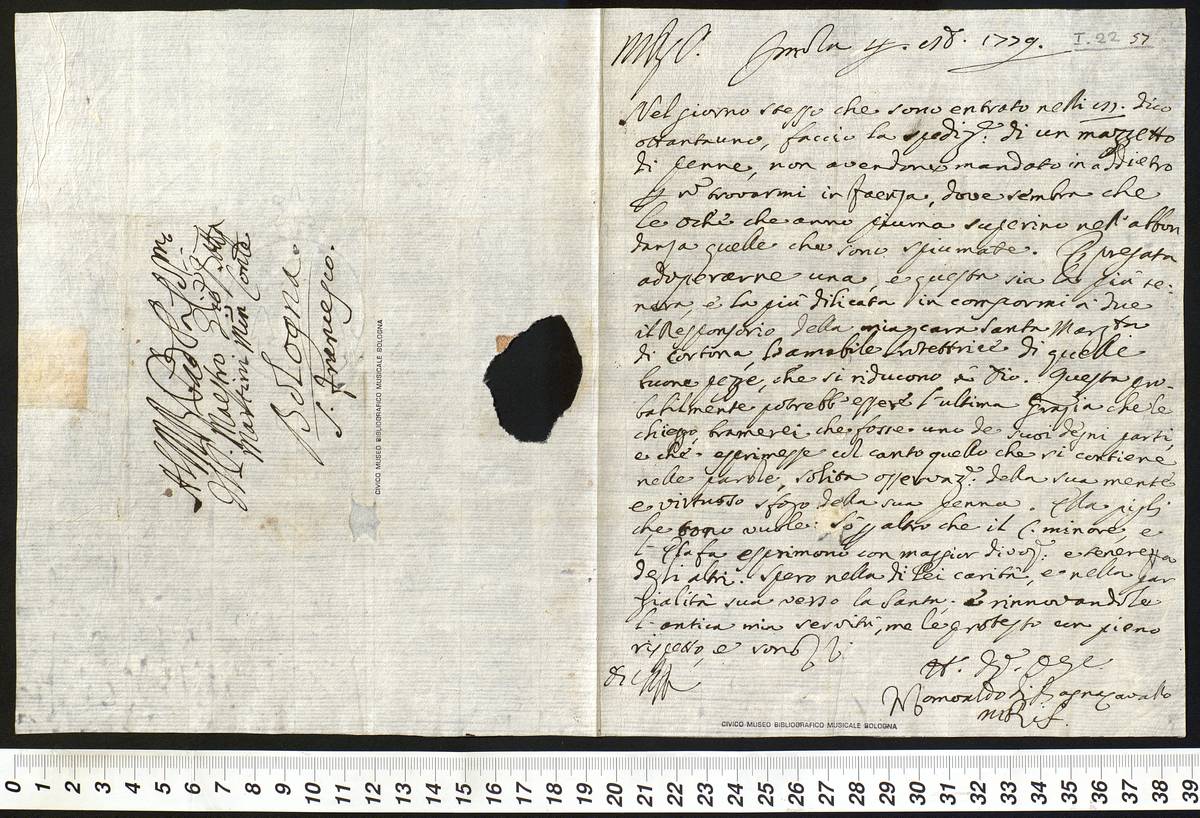 Bologna.
S. Francesco.
Martini Min. Conv.
Maestro Gio: Batta
CIVICO MUSEO BIBLIOGRAFICO MUSICALE BOLOGNA
Imola 4. 1779.
I.22 57
Nel giorno stesso che sono entrato nelli dico
ottantauno, faccio la spediz.e di un mazzetto
di penne, non avendone mandato in addietro
trovarmi in Faenza, dove sembra che
le oche che anno piuma superino nell'abbon
danza quelle che sono spiumate. pregata
adoperarne una, e questa sia la più te-
nera, e la più dilicata in compormi a due
il Responsorio della mia cara Santa Marg.ta
di Cortona, amabile Protettrice di quelle
buone pezze, che si riducono a Dio. Questa pro-
babilmente potrebb'essere l'ultima grazia che le
chieggo, bramerei che fosse uno de suoi degni parti,
e che esprimesse col canto quello che si contiene
nelle parole, solita osservaz.e della sua mente
e virtuoso sfogo della sua penna. Ella pigli
che tono vuole: altro che il C. minore, e
l' Elafa esprimono con maggior divoz.e e tenerezza
degli altri. Spero nella di lei carità, e nella par
zialità sua verso la Santa. e rinnovandole
l'antica mia servitù, me le protesto con pieno
rispetto, e sono
di
Romoaldo di Bagnacavallo
CIVICO MUSEO BIBLIOGRAFICO MUSICALE BOLOGNA
0 1 2 3 4 5 6 7 8 9 10 11 12 13 14 15 16 17 18 19 20 21 22 23 24 25 26 27 28 29 30 31 32 33 34 35 36 37 38 39